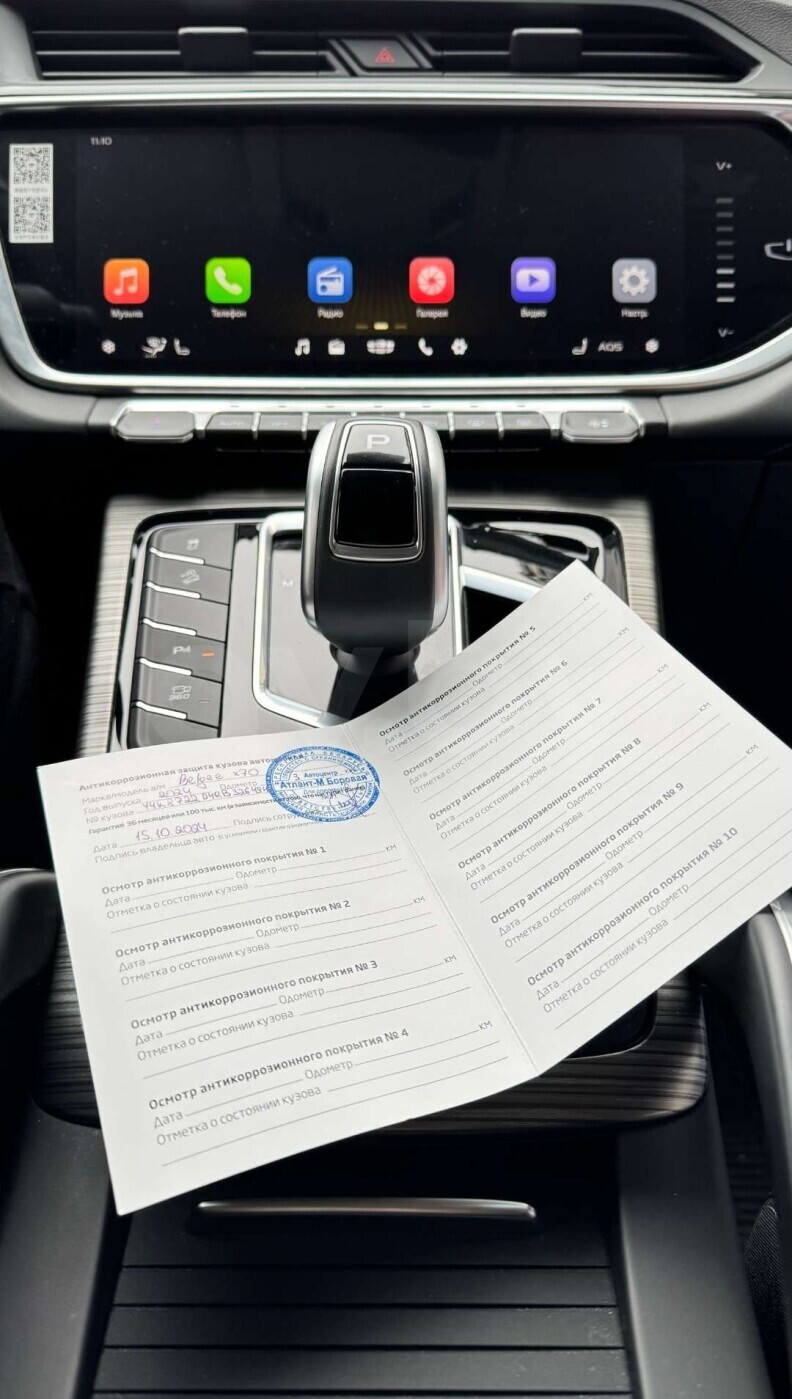 11:10
V+
Музыка
Телефон
Радио
Галерея
Видео
Настр.
AQS
V-
P
M
360
Антикоррозионная защита кузова
Марка/модель а/м Belgee x70
Год выпуска 2024 Одометр
№ кузова
Гарантия 36 месяцев или 100 тыс. км
Дата 15.10.2024 Подпись
Подпись владельца авто
Автоцентр
Атлант-М Боровая
Осмотр антикоррозионного покрытия № 1
Дата Одометр км
Отметка о состоянии кузова
Осмотр антикоррозионного покрытия № 2
Дата Одометр км
Отметка о состоянии кузова
Осмотр антикоррозионного покрытия № 3
Дата Одометр км
Отметка о состоянии кузова
Осмотр антикоррозионного покрытия № 4
Дата Одометр км
Отметка о состоянии кузова
Осмотр антикоррозионного покрытия № 5
Дата Одометр км
Отметка о состоянии кузова
Осмотр антикоррозионного покрытия № 6
Дата Одометр км
Отметка о состоянии кузова
Осмотр антикоррозионного покрытия № 7
Дата Одометр км
Отметка о состоянии кузова
Осмотр антикоррозионного покрытия № 8
Дата Одометр км
Отметка о состоянии кузова
Осмотр антикоррозионного покрытия № 9
Дата Одометр км
Отметка о состоянии кузова
Осмотр антикоррозионного покрытия № 10
Дата Одометр км
Отметка о состоянии кузова